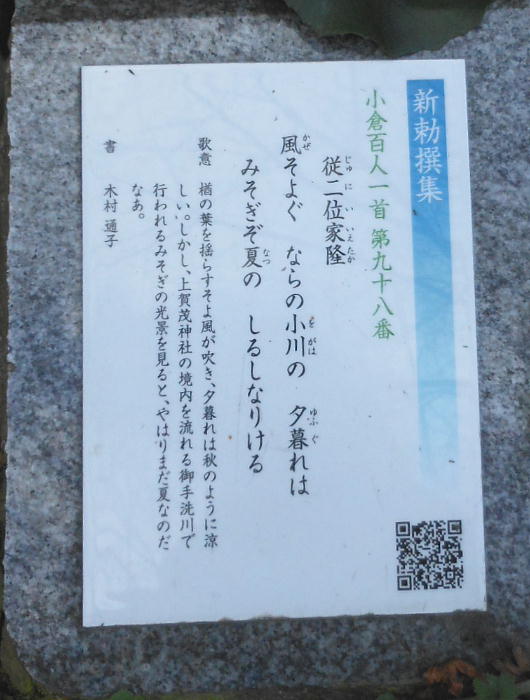 新勅撰集
小倉百人一首 第九十八番
従二位家隆
じゅにいいえたか
風そよぐ ならの小川の 夕暮れは
かぜ をがは ゆふぐ
みそぎぞ夏の しるしなりける
なつ
歌意 楢の葉を揺らすそよ風が吹き、夕暮れは秋のように涼
しい。しかし、上賀茂神社の境内を流れる御手洗川で
行われるみそぎの光景を見ると、やはりまだ夏なのだ
なあ。
書 木村 通子